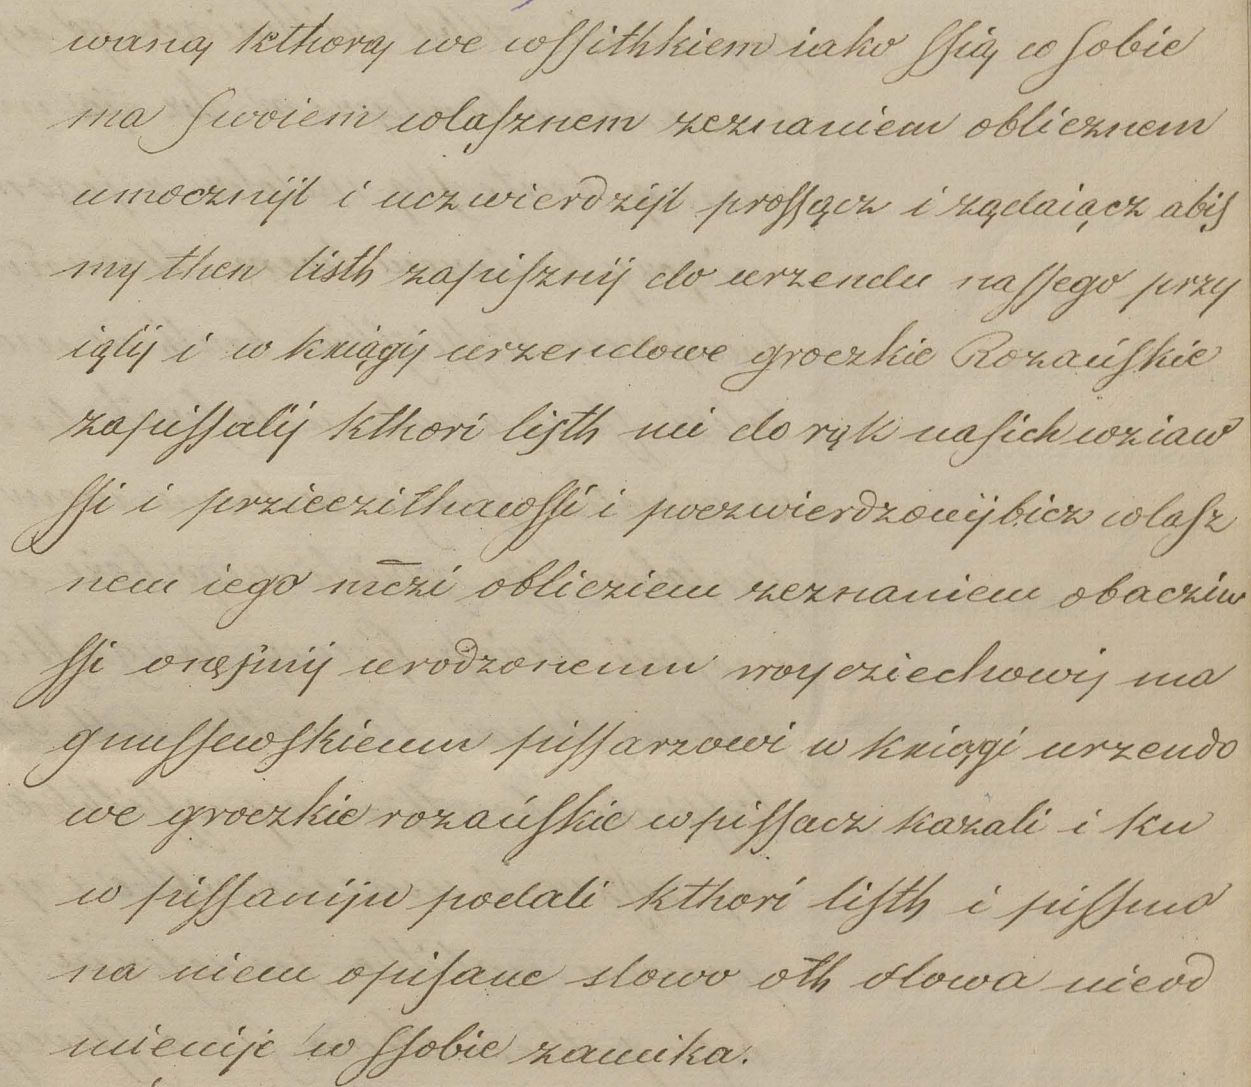 waną kthorą we wssithkiem iako ssią w sobie
ma swoiem wlasznem zeznaniem obliecznem
umocznijł i uczwierdzijł prossącz i ządaiącz abij
my then listh zapisznij do urzendu nassego przy
iąlij i w kxiągij urzendowe groczkie Rozańskie
zapissalij kthori listh mi do rąk nasich wziaw
ssi i przieczithawssi i poczwierdzonij bicz wlasz
nem iego mczi oblicziem zeznaniem obacziw
ssi urodzonemu woyciechowij ma
gnussewskiemu pissarzowi w kxiągi urzendo
we groczkie rozańskie wpissacz kazali i ku
w pissanijw podali kthori listh i pissmo
na niem opisane slowo oth słowa nieod
mienije w ssobie zamika.